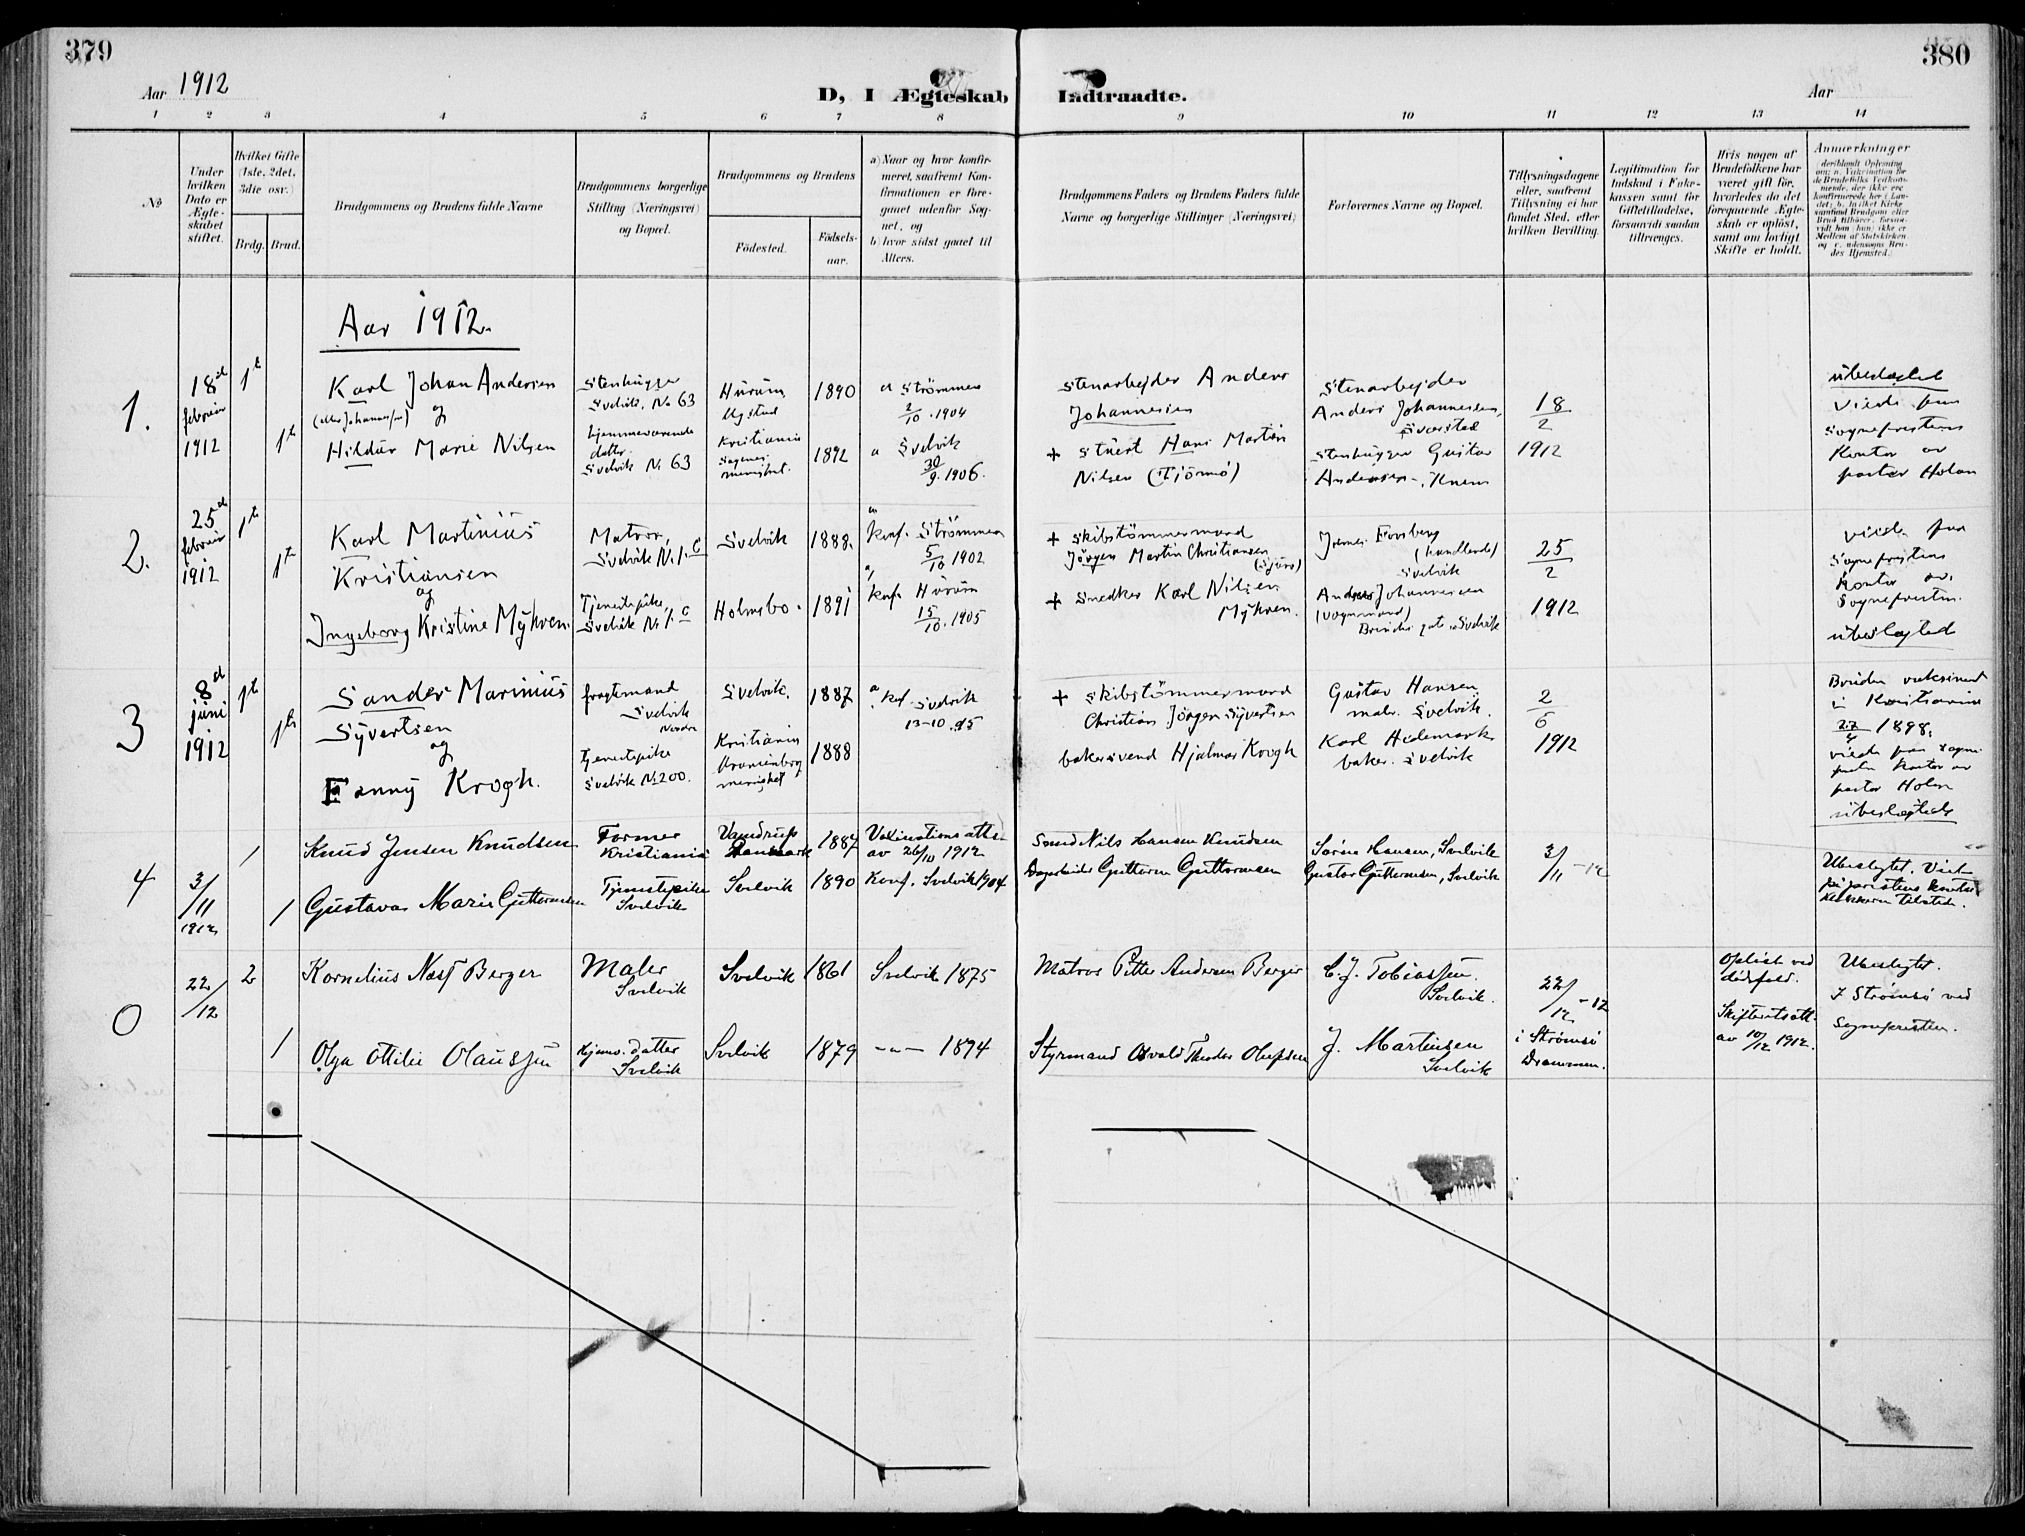 379
380
Aar 1912
D, I Ægteskab Indtraadte.
Aar
1 2 3 4 5 6 7 8 9 10 11 12 13 14
No
Under hvilken Dato er Ægteskabet stiftet.
Hvilket Gifte (1ste, 2det, 3die osv.)
Brdg.
Brud.
Brudgommens og Brudens fulde Navne
Brudgommens borgerlige
Stilling (Næringsvei)
og Bopæl.
Brudgommens og Brudens
Fødested.
Fødsels-
aar.
a) Naar og hvor konfir-
meret, saafremt Kon-
firmationen er fore-
gaaet udenfor Sog-
net, og
b) hvor sidst gaaet til
Alters.
Brudgommens Faders og Brudens Faders fulde
Navne og borgerlige Stillinger (Næringsvei)
Forlovernes Navne og Bopæl.
Tillysningsdagene
eller, saafremt
Tillysning ei har
fundet Sted, efter
hvilken Bevilling.
Legitimation for
Indskud i Enke-
kassen samt for
Giftetilladelse,
forsaavidt saadan
tiltrænges.
Hvis nogen af
Brudefolkene har
været gift før,
hvorledes da det
foregaaende Ægte-
skab er opløst,
samt om lovligt
Skifte er holdt.
Anmærkninger
Aar 1912.
1.
18d
februar
1912
1te
1te
Karl Johan Andersen
og
Hildur Marie Nilsen
Stenhugger
Svelvik, No 63
hjemmeværende
datter
Svelvik No 63
Hurum
Kristiania
1890
1892
a Strømmen
2/10. 1904
a Svelvik
30/9. 1906.
Stenarbejder Anders
Johannesen
+ Stuert Hans Martin
Nilsen (Tjömö)
Stenarbejder
Anders Johannesen,
Stenhugger Gustav
Andersen
18/2
1912
ubeslægtet
viede paa
sogneprestens
kontor av
pastor Holan
2.
25d
februar
1912
1te
1te
Karl Martinius
Kristiansen
og
Ingeborg Kristine Myhren.
Matros,
Svelvik No 1. c
Tjenestepike,
Svelvik No 1. c
Svelvik
Holmsbo.
1888.
1891
a
konf. Strømmen
5/10 1902
a,
konf. Hurum
15/10. 1905
+ skibstömmermand
Jörgen Martin Christiansen
+ Snedker Karl Nilsen
Myhren.
Forsberg
(handlende)
Svelvik
Anders Johannesen
(vognmand)
Svelvik
25/2
1912
viede paa
sogneprestens
kontor av
Sognepresten.
ubeslægted
3
8d
juni
1912
1te
1te
Sander Marinius
Syvertsen
og
Fanny Krogh.
fragtemand
Svelvik
Nordre
tjenestepike
Svelvik No 200.
Svelvik.
Kristiania
Uranienborg
menighet
1887
1888
a kof. Svelvik
13-10. 95
+ Skibstömmermand
Christian Jörgen Syvertsen
bakersvend Hjalmar Krogh
Gustav Hansen
maler. Svelvik.
Karl Hedemark
baker. Svelvik
2/6
1912
Bruden vaksineret
i Kristiania
27/4 1898.
viede paa sogne-
prestens kontor av
pastor Holan
ubeslægtede
4
3/11
1912
1
1
Knud Jensen Knudsen
Gustava Marie Guttormsen
Former
Kristiania
Tjenestepike
Svelvik
Vamdrup
Danmark
Svelvik
1887
1890
Vakinations att.
av 26/10 1912
Konf. Svelvik 1904
Smed Nils Hansen Knudsen
Dagarbeider Guttorm Guttormsen
Søren Hansen, Svelvik
Gustav Guttormsen, Svelvik
3/11 -12
Ubeslegtet. Viet
på prestens kontor
Klokkeren tilstede.
0
22/12
2
1
Kornelius Næss Berger
Olga Ottilie Olaussen
Maler
Svelvik
Hjemv. datter
Svelvik
Svelvik
Svelvik
1861
1879
Svelvik 1875
— " — 1894
Matros Petter Andersen Berger
Styrmand Osvald Theodor Olufsen
C. J. Tobiassen.
Svelvik.
J. Martinsen
Svelvik
22/12 -12
i Strømsø
Drammen.
Opløst ved
dødsfald.
Skifteretsatt.
av 10/12 1912.
Ubeslegtet.
I Strømsø ved
Sognepresten.